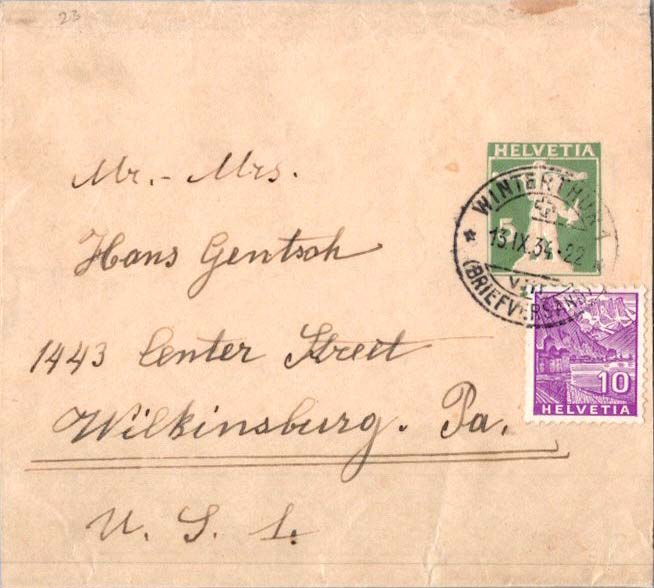 23
Mr. - Mrs.
Hans Gentsch
1443 Center Street
Wilkinsburg. Pa.
U. S. A.
HELVETIA
5
WINTERTHUR 1
13.IX.34-22
(BRIEFVERSAND)
10
HELVETIA